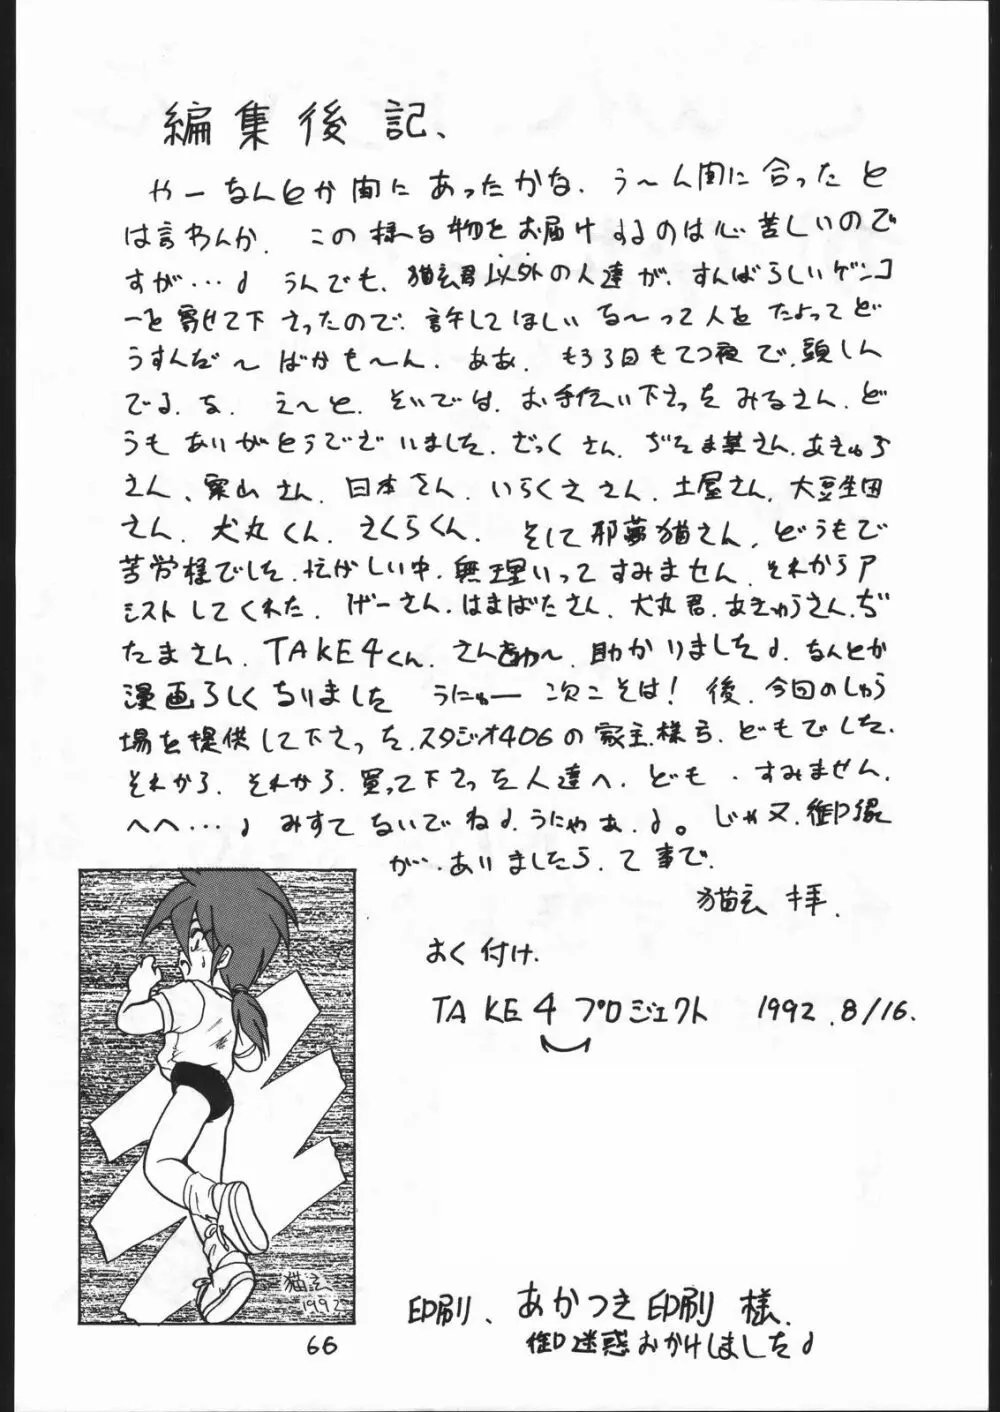 編集後記、
やーなんとか間にあったかな、う〜ん間に合ったと
は言わんか、この様な物をお届けするのは心苦しいので
すが…♩うんでも、猫玄君以外の人達が、すんばらしいゲンコ
ーを寄せて下さったので、許してほしいな〜って人をたよってど
うすんだ〜ばかも〜ん、ああ、もう3日もてつ夜で、頭しん
でるな、え〜と、ぞいでは、お手伝い下さったみなさん、ど
うもありがとうでざいました、ざっくさん、ぢたま某さん、あきゅう
さん、栗山さん、日本さん、いらくささん、土屋さん、大豆生田
さん、犬丸くん、さくらくん、そして邪夢猫さん、どうもで
苦労様でした、忙がしい中、無理いってすみません、それからア
シストしてくれた、げーさん、はまばたさん、犬丸君、あきゅうさん、ぢ
たまさん、TAKE4くん、さんきゅ〜、助かりました♩、なんとか
漫画らしくなりました うにゅー 次こそは！後、今回のしゅら
場を提供して下さった、スタジオ406の家主様も、どもでした、
それから、それから、買って下さった人達へ、ども、すみません、
へへ…♩みすてないでね♩、うにゃぁ、♩。じゃ又、御縁
が…ありましたら、て事で、
猫玄 拝、
おく付け、
TAKE4プロジェクト 1992.8/16.
猫玄
1992
印刷、あかつき印刷 様、
御迷惑おかけしました♩
66